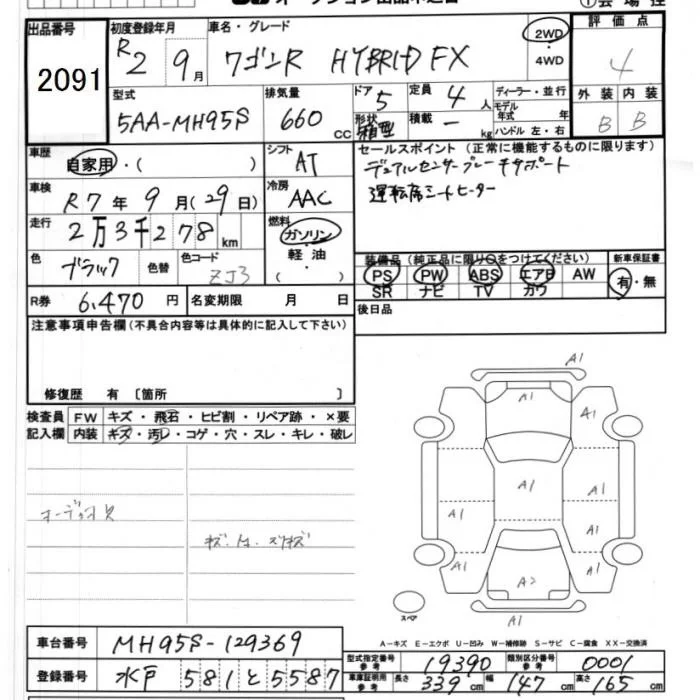 出品番号 2091
初度登録年月 R2 9月
車名・グレード ワゴンR HYBRID FX
2WD・4WD
評価点 4
型式 5AA-MH95S
排気量 660 cc
ドア 5 定員 4人
形状 箱型 積載 ー kg
ディーラー・並行
モデル年式 年
ハンドル 左・右
外装 B 内装 B
車歴 自家用・( )
シフト AT
車検 R7年9月(29日)
冷房 AAC
走行 2万3千278km
燃料 ガソリン 軽油 ( )
色 ブラック 色替 色コード ZJ3
R券 6,470円 名変期限 月 日
セールスポイント(正常に機能するものに限ります)
デュアルセンサーブレーキサポート
運転席シートヒーター
装備品(純正品に限り○をつけてください) 新車保証書
PS PW ABS エアB AW 有・無
SR ナビ TV カワ
後日品
注意事項申告欄(不具合内容等は具体的に記入して下さい)
修復歴 有〔箇所 〕
検査員記入欄 FW キズ・飛石・ヒビ割・リペア跡・×要
内装 キズ・汚レ・コゲ・穴・スレ・キレ・破レ
A1
A1 A1
A1 A1 A1
A1 A1
A1 A2 A1
A1
スペア
A-キズ E-エクボ U-凹み W-補修跡 S-サビ C-腐食 XX-交換済
車台番号 MH95S-129369
登録番号 水戸 581 と 5587
型式指定番号 参考 19390 類別区分番号 参考 0001
車庫証明用 参考 長さ 339cm 幅 147cm 高さ 165cm